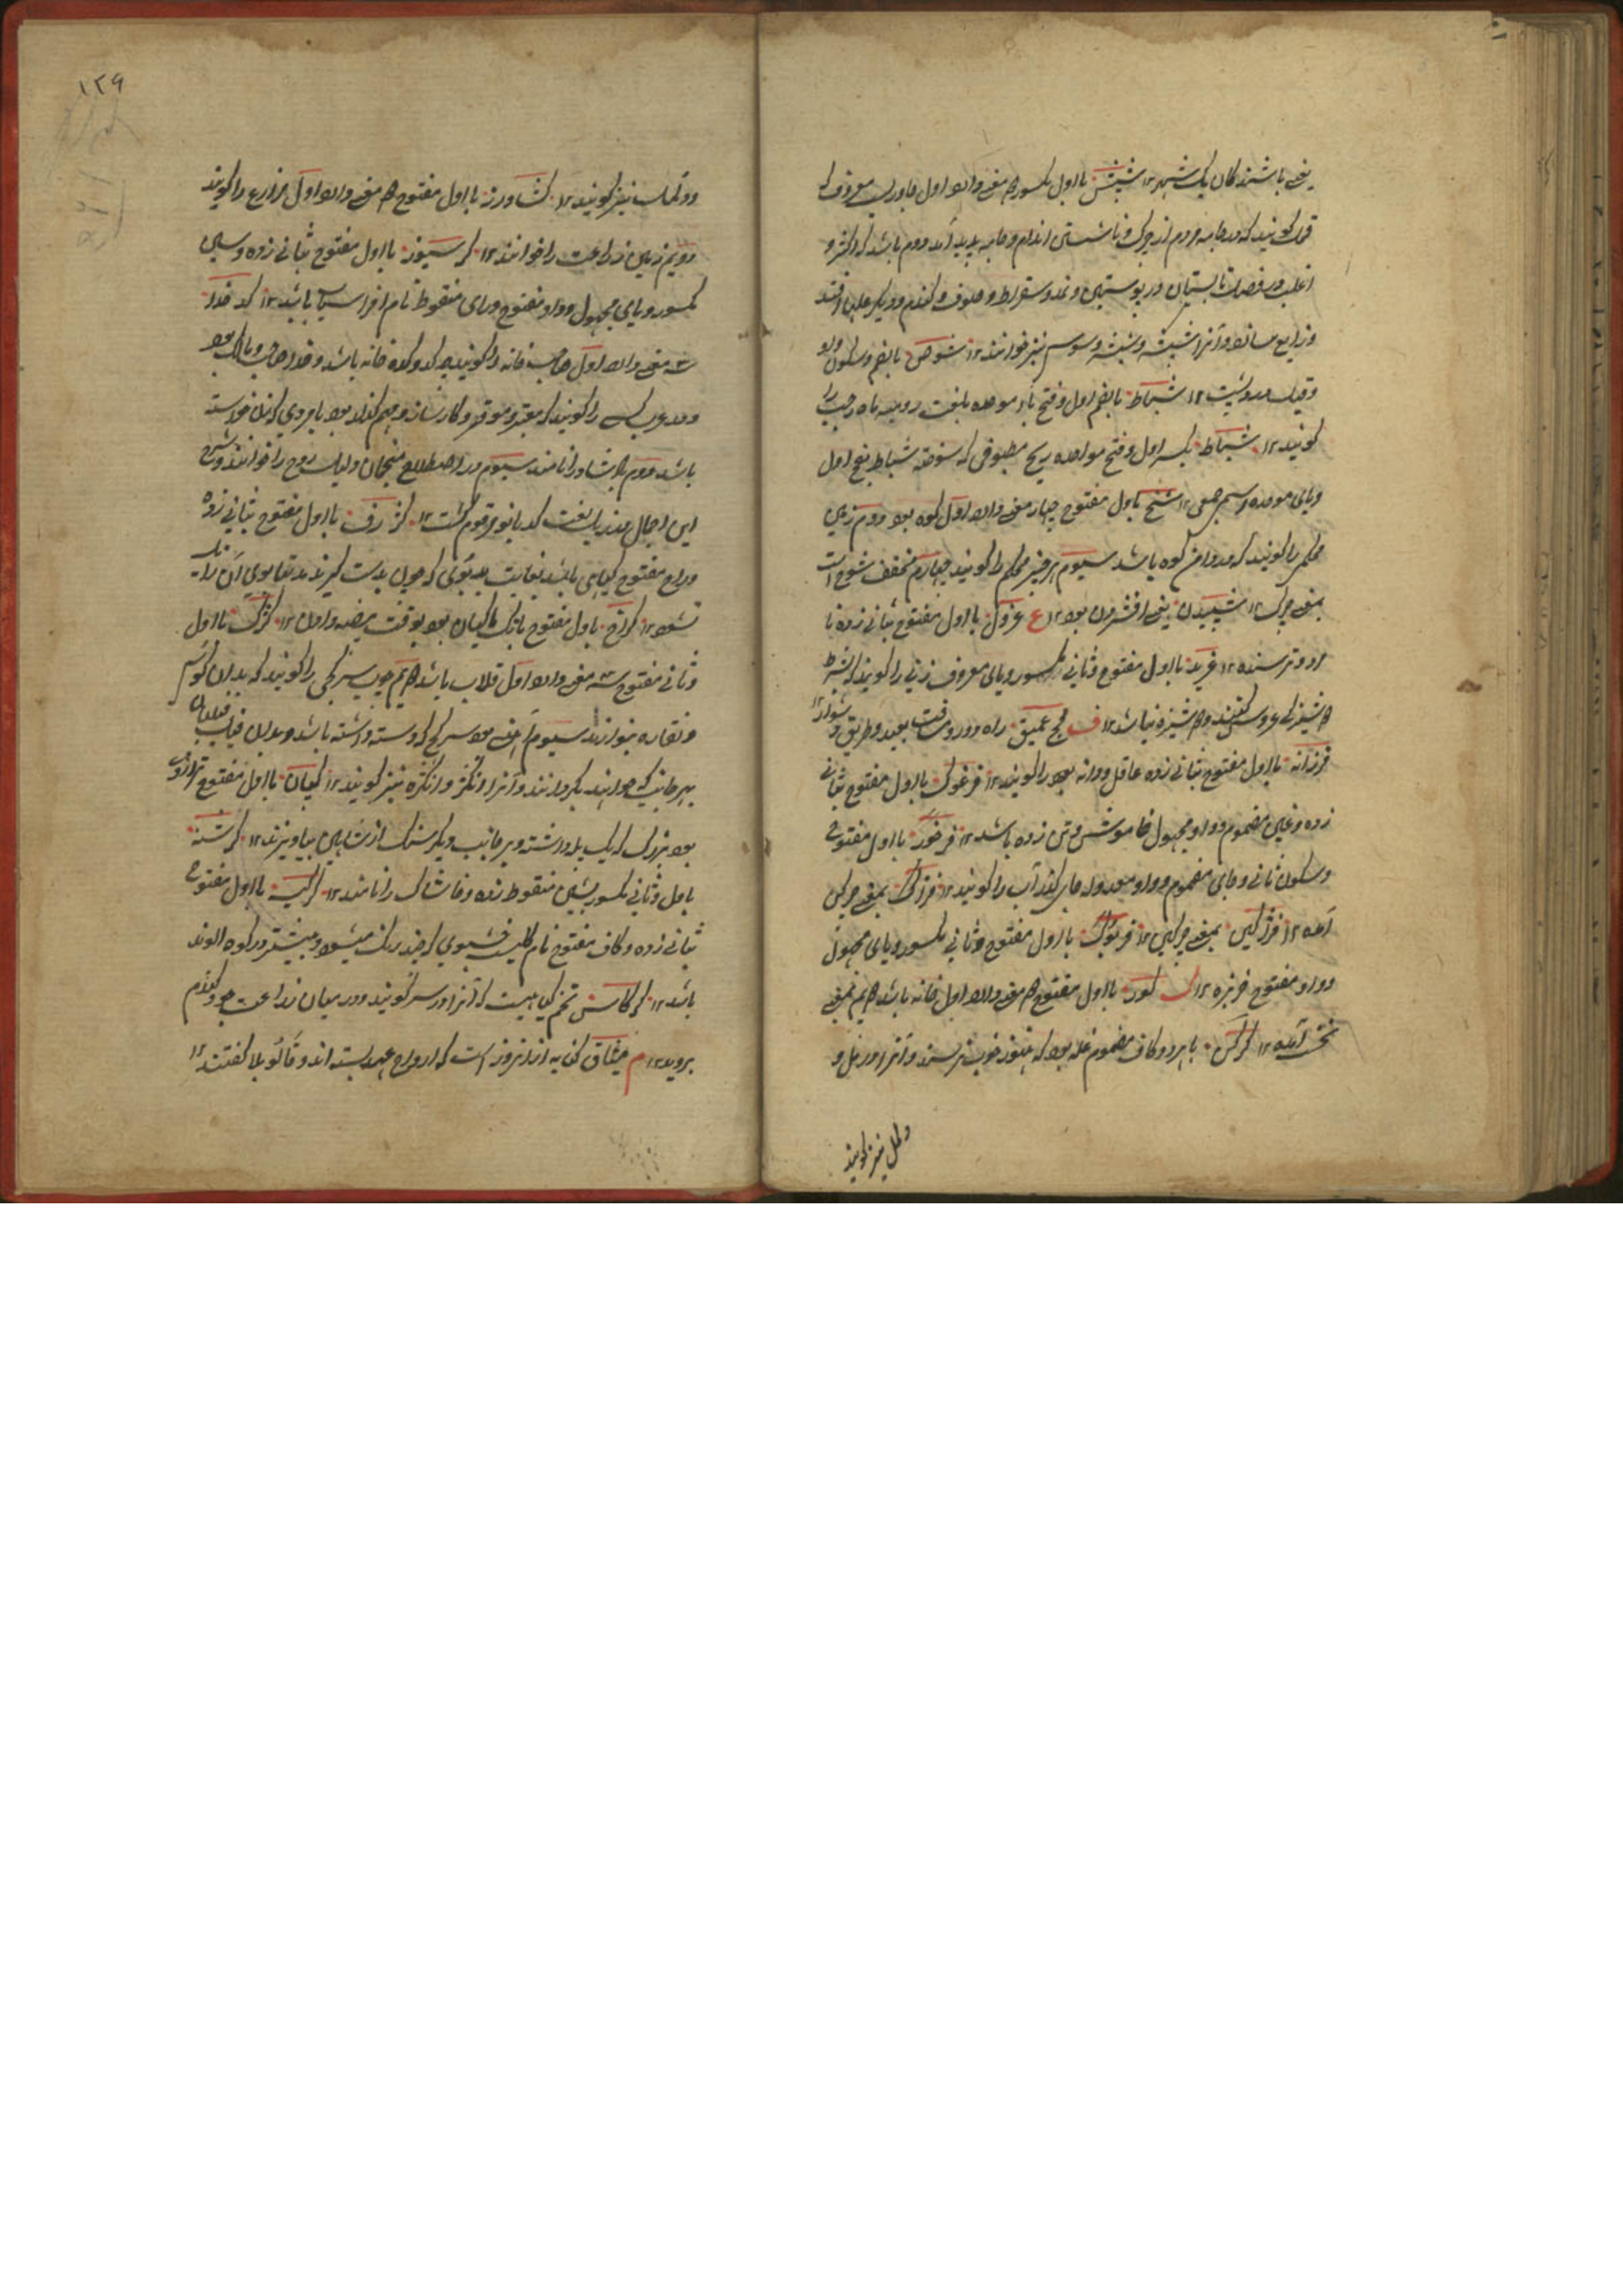 یعنی باشندگان یک شهر ۱۲ شپش با اول مکسور دو معنی دارد اول جانوریست معروف که
گویند که در جامه مردم از چرک و ناشستن اندام و جامه پدید آید دوم باشد که اکثر و
اغلب در فصل تابستان در پوستین و نمد و سقرلاط و صوف و گندم و دیگر غله‌ها افتد
و ضایع سازد و آنرا شپشه و شپشه و سوس نیز خوانند ۱۲ شوص بالفم وسکون واو
۱۲ شباط بالضم اول و فتح باء موحده بلغت رومیه ماه رجب را
گویند ۱۲ شباط بکسر اول و فتح موحده شباط بفتح اول
وبای موحده اسم ۱۲ شخ باول مفتوح چهار معنی دارد اول کوه بود دوم زمین
محکم را گویند که در دامن کوه باشد سیوم هر چیز محکم را گویند چهارم مخفف شوخ است
بمعنی چرک ۱۲ شپیدن یعنی افشردن بود ۱۲ ع غژول با اول مفتوح بثانی زده با
ترسنده ۱۲ غرید با اول مفتوح وثانی مکسور ویای معروف زنی را گویند که بشرط
دوشیزگی عروس کنند و دوشیزه نباشد ۱۲ ف فج عمیق راه دور و مسافت بعید و طریق دشوار ۱۲
فرزانه با اول مفتوح بثانی زده عاقل و دانه بود را گویند ۱۲ فرغوک با اول مفتوح بثانی
زده و غین مضموم وواو مجهول خاموش و تن زده باشد ۱۲ فرخور با اول مفتوح
وسکون ثانی و خای مضموم وواو معدوله جای گذر آب را گویند ۱۲ فژاک بمعنی چرکن
آمده ۱۲ فژاکین بمعنی چرکین ۱۲ فریوک با اول مفتوح وثانی مکسور ویای مجهول
وواو مفتوح خربزه ۱۲ ک کور با اول مفتوح دو معنی دارد اول خانه باشد دویم بمعنی
آمده ۱۲ کرکن با هر دو کاف مضموم غله بود که هنوز خوب نرسیده و آنرا دور مل و
ودلمل نیز گویند
۱۲۶
ودلمک نیز گویند ۱۲ کشاورز با اول مفتوح دو معنی دارد اول مزارع را گویند
دویم زمین زراعت را خوانند ۱۲ کرسیوز با اول مفتوح بثانی زده و سین
مکسور ویای مجهول وواو مفتوح وزای منقوط نام افراسیاب باشد ۱۲ کدخدا
سه معنی دارد اول صاحب خانه را گویند چه کد وکده خانه باشد وخدا صاحب و مالک بود
ودر عرب کسی را گویند که معتبر و موقر و کارساز و مهم گذار بود یا مردی که زن خواسته
باشد دوم پادشاه را نامند سیوم در اصطلاح منجمان دلیل روح را خوانند و شرح
این اجمال در ذیل لغت کدبانو مرقوم گشت ۱۲ کژرف با اول مفتوح بثانی زده
وراء مفتوح گیاهی باشد بغایت بدبوی که چون بدست گیرند
نشود ۱۲ کراخ باول مفتوح بانک ماکیان بود بوقت بیضه دادن ۱۲ کژک با اول
وثانی مفتوح سه معنی دارد اول قلاب باشد دویم چوب سرکجی را گویند که بدان کوس
ونقاره بنوازند سیوم آهنی بود سرکج که دسته داشته باشد و بدان فیلبان فیل
بهر جانب که خواهند بگردانند وآنرا انگژ و انگژه نیز گویند ۱۲ کپان با اول مفتوح ترازوی
بود بزرگ که یک پله داشته و بر جانب دیگر سنگ از شاهین بیاویزند ۱۲ کرشنه
باول وثانی مکسور بشین منقوط زده وخاشاک را نامند ۱۲ کرکیه با اول مفتوح
بثانی زده و کاف مفتوح نام گلیست خوشبوی که چند رنگ میشود و بیشتر در کوه الوند
باشد ۱۲ کرکاس تخم گیاهیست که آنرا دوسر گویند ودر میان زراعت جو و گندم
بروید ۱۲ م میثاق کنایه از آنروز است که ارواح عهد بسته اند و قالوا بلا گفتند ۱۲